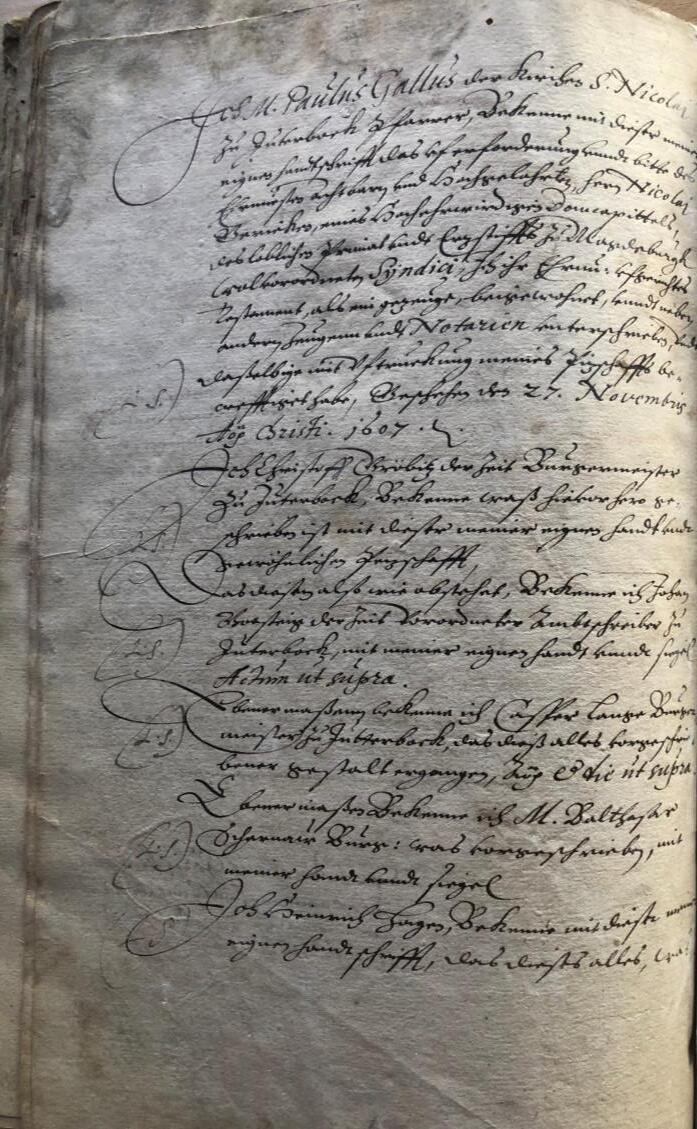 Ich M. Paulus Gallus der Kirchen S. Nicolai
zu Juterbock Pfarrer, Bekenne mit dieser meiner
eignen handtschrifft, das vf erforderung vnndt bitte des
Ehrnuesten achtbarn vnd Hochgelahrten, hern Nicolai
eines Hochehrwirdigen Domcapittels,
des loblichen Primat vndt Ertzstiffts zu Magdeburgk
wolverordneten Syndici, Ich ihr Ehrnu:
Testament, als ein gezeuge, beigewohnet, vnndt neben
andern Zeugenn vndt Notarien vnterschrieben, vndt
daßelbige mit Vftruckung meines Pitzschaffts be-
krefftiget habe, Geschehen den 27. Novembris
Anno Christi. 1607.
(L.S.)
Ich Christoff der Zeit Burgermeister
zu Juterbock, Bekenne waß hievorhero ge-
schrieben ist mit dieser meiner eignen handt vndt
gewöhnlichen Petzschafft,
(L.S.)
Das diesem also wie obstehet, Bekenne ich Johan
der Zeit Verordneter Ambtschreiber zu
Juterbock, mit meiner eignen handt vnndt siegel
Actum ut supra.
(L.S.)
Ebenermaßenn bekenne ich Casper Lange Burger
meister zu Jutterbock, das dieß alles vorgeschrie
bener gestalt ergangen, Anno & die ut supra
(L.S.)
Ebenermaßen Bekenne ich M. Balthasar
Burg: was vorgeschrieben, mit
meiner handt vnndt siegel
(L.S.)
Ich Heinrich Hagen, Bekenne mit dieser meiner
eignen handtschrifft, das dieses alles, was
(S)